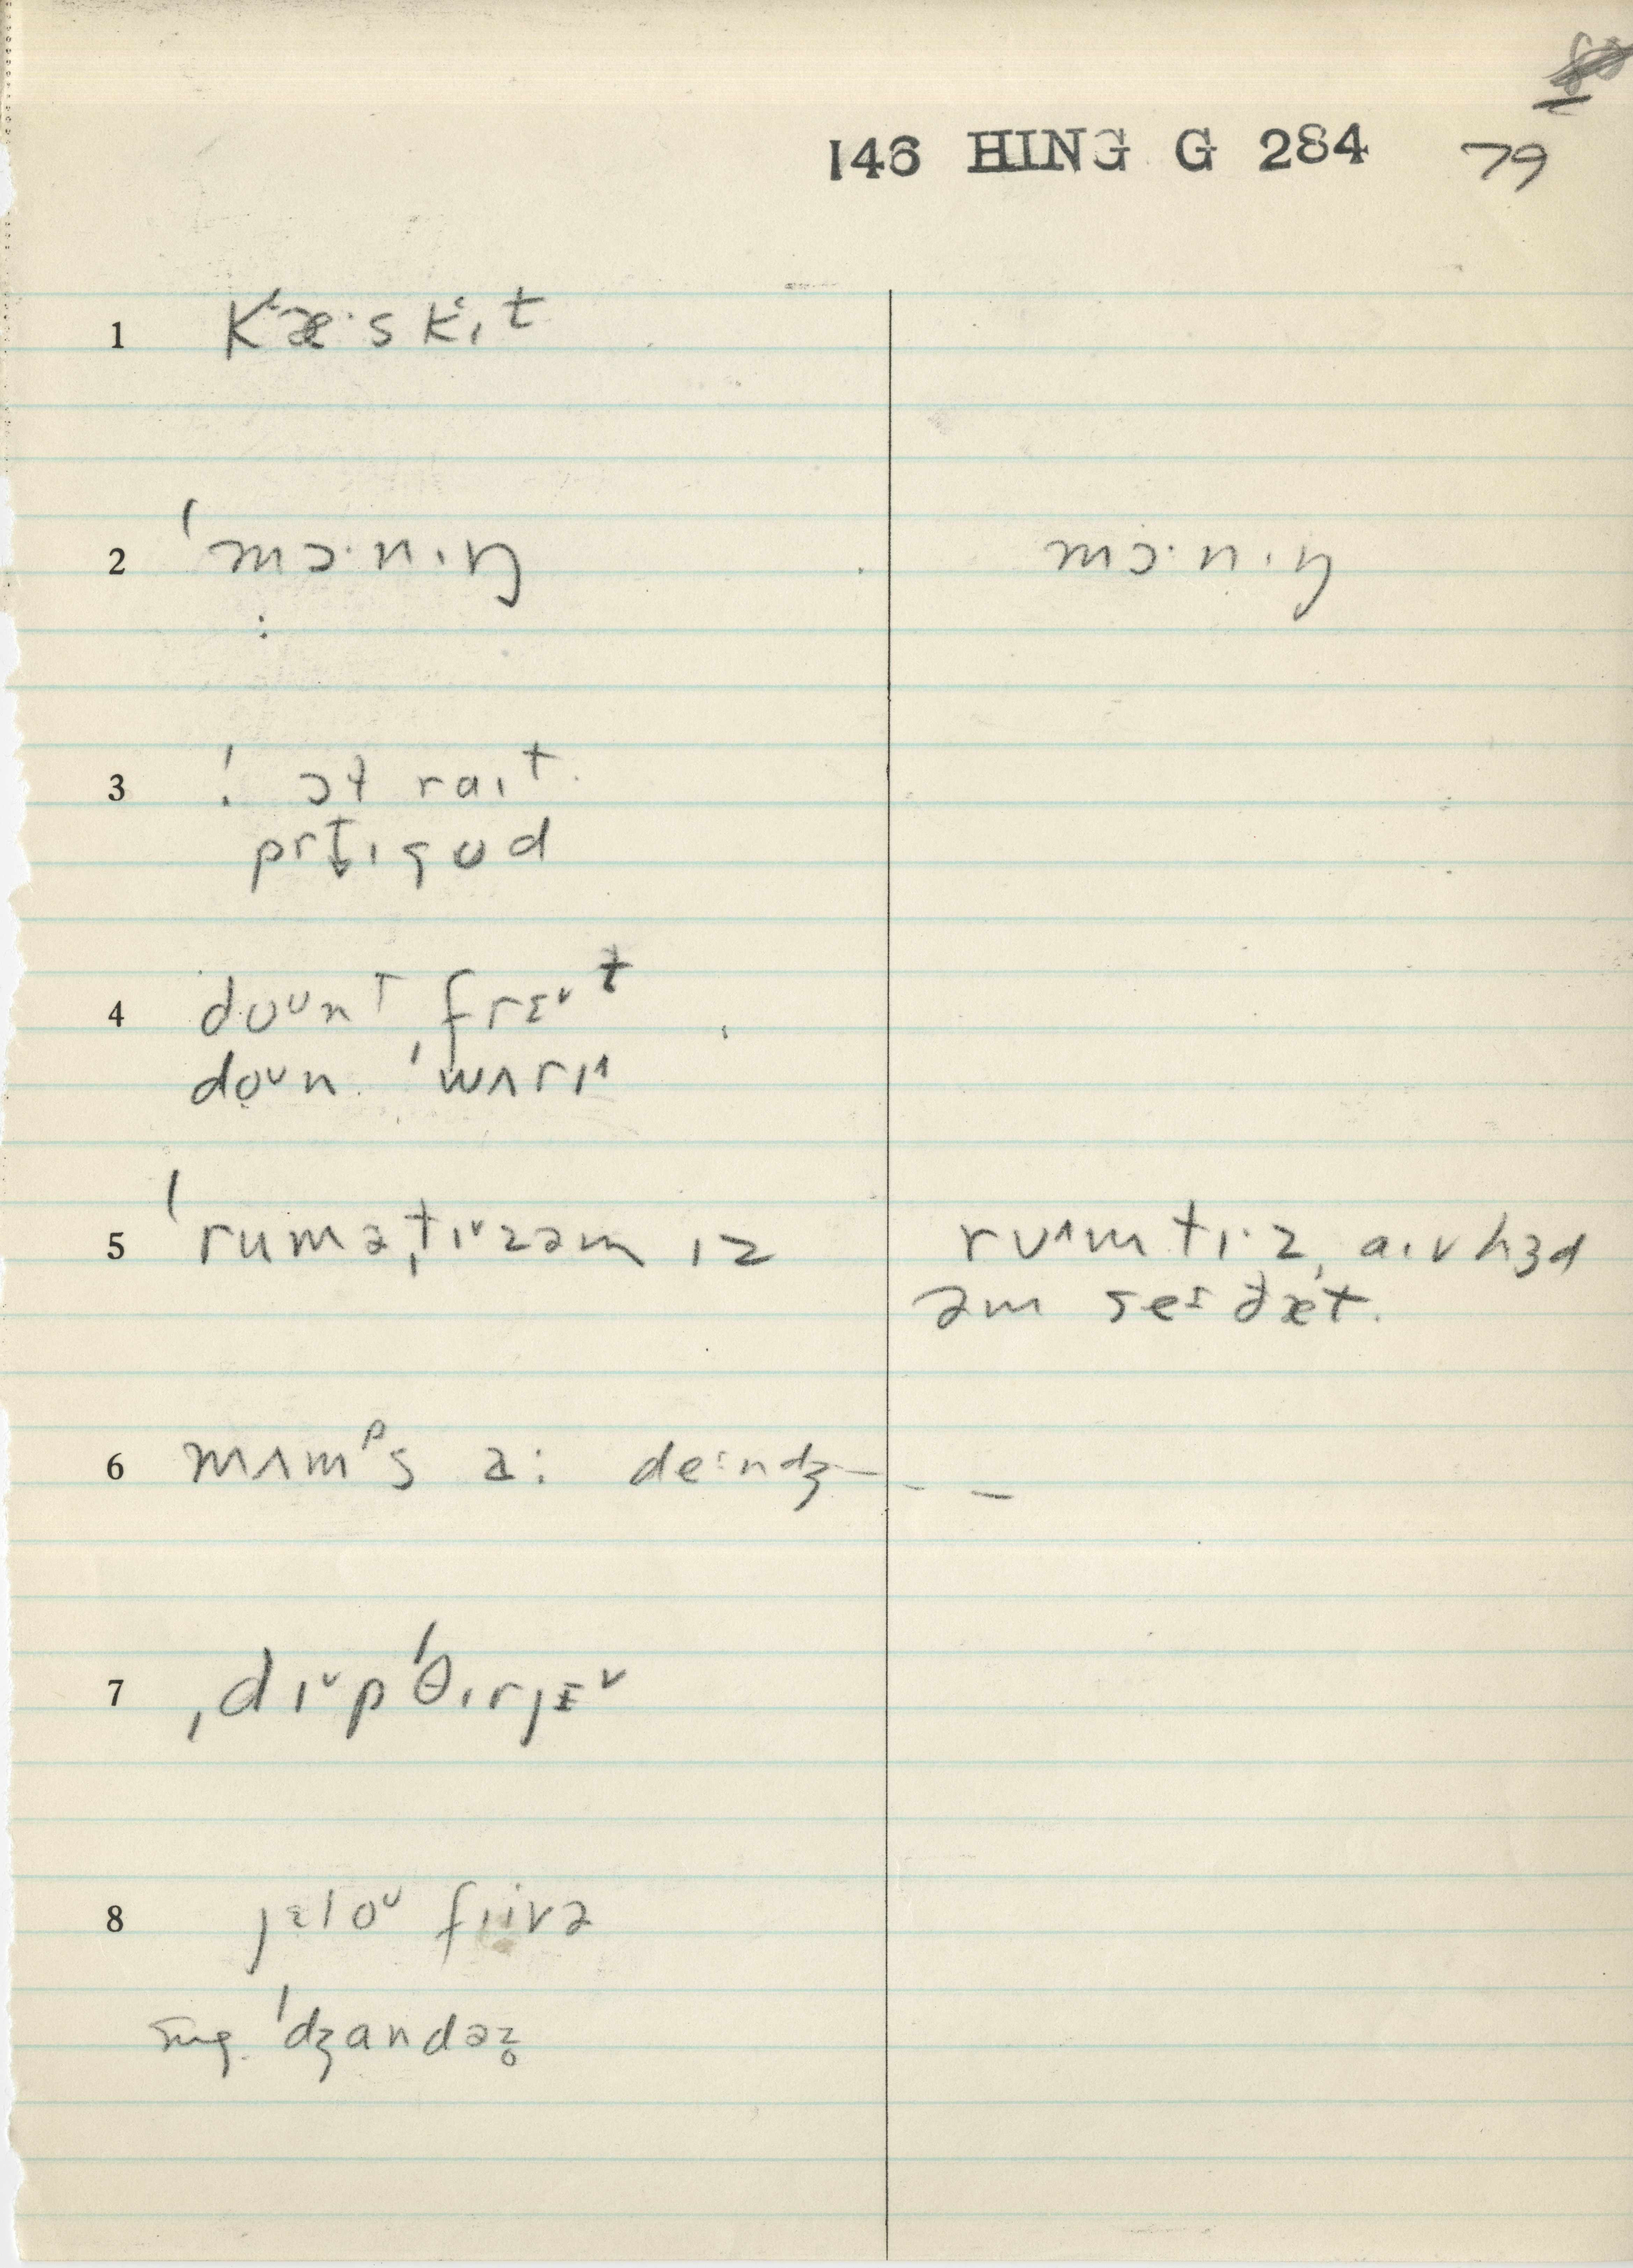 146 HING G 284 79
1 Kʻæ·s Kʻɪt
2 ˈmɔ·n·ɪŋ mɔ·n·ɪŋ
3 ˈ ɔɫ raɪt
prɪgud
4 doᴜnᵀ frɛᵛt
doᴜn ˈwʌrɪ^
5 ˈruməˌtɪᵛzəm ɪz ru^mtɪ·z, aɪv hɜd
əm seɪ ðæt.
6 mʌmᵖs ə: deɪndʒ - - -
7 ˌdɪᵛpˈθɪrjɛᵛ
8 jɛloᴜ fiivə
ˈdʒandəz̥